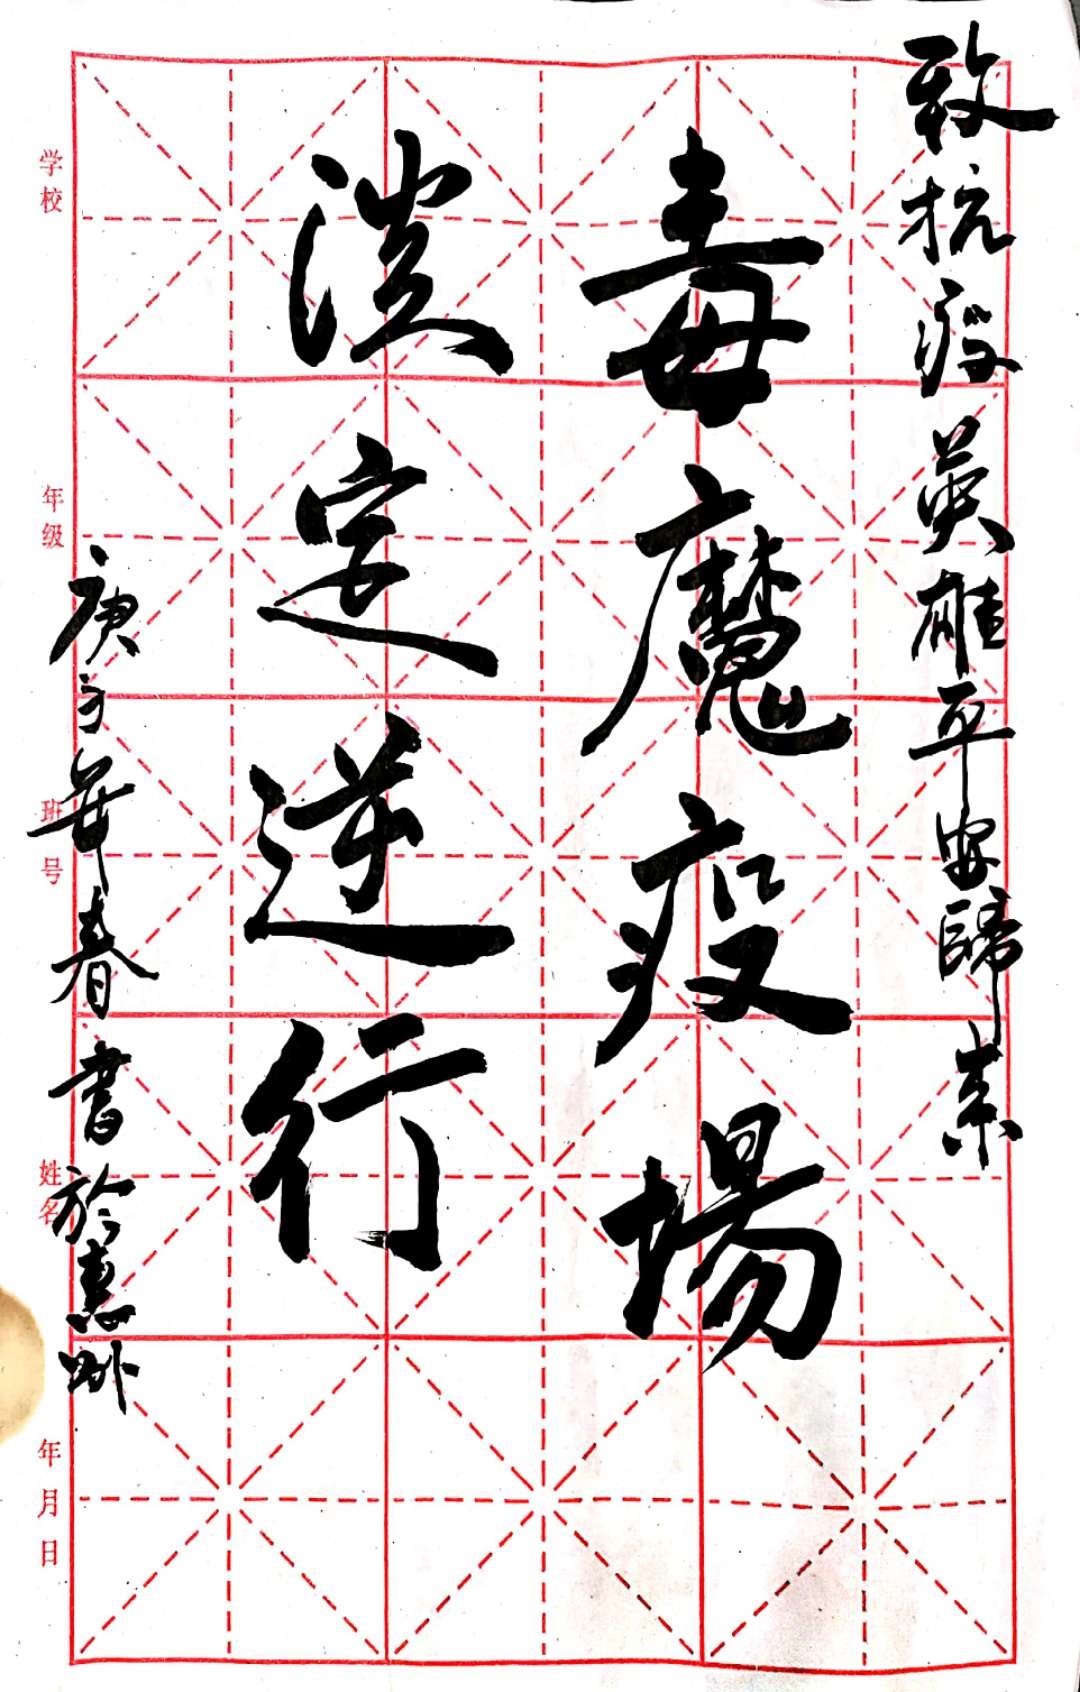 致抗疫英雄平安歸来
毒魔疫場
淡定逆行
庚子年春書於惠州
学校
年级
班号
姓名
年月日